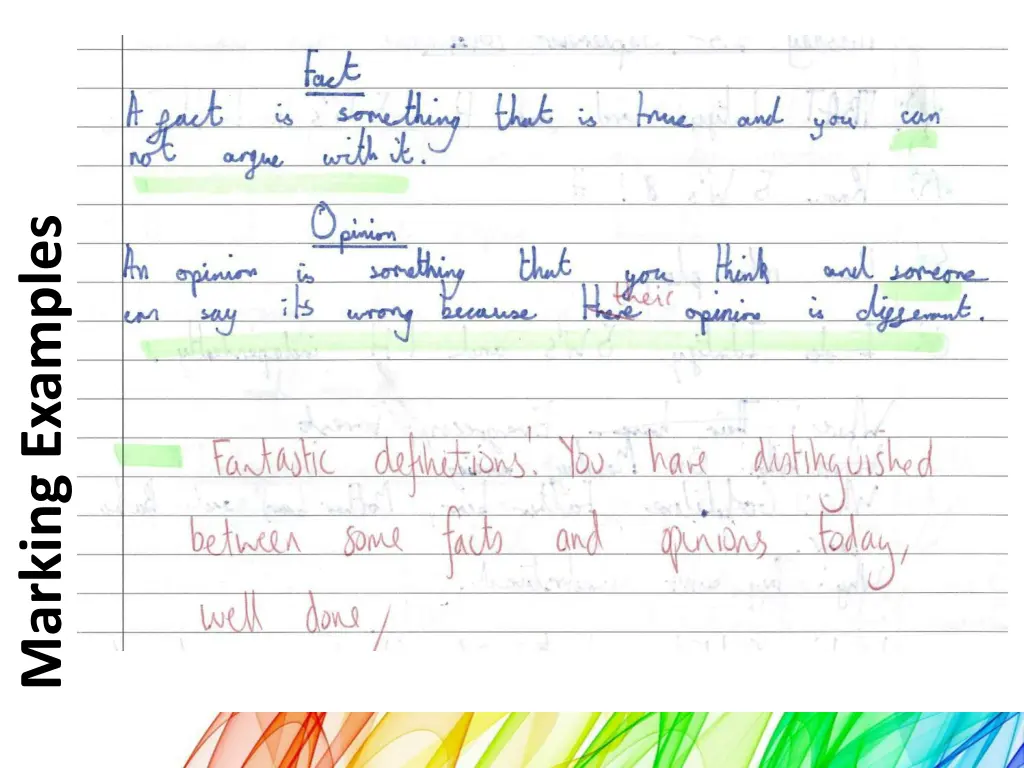 Marking Examples
Fact
A fact is something that is true and you can
not argue with it.
Opinion
An opinion is something that you think and someone
can say its wrong because there opinion is differant.
their
Fantastic definetions! You have distinguished
between some facts and opinions today,
well done